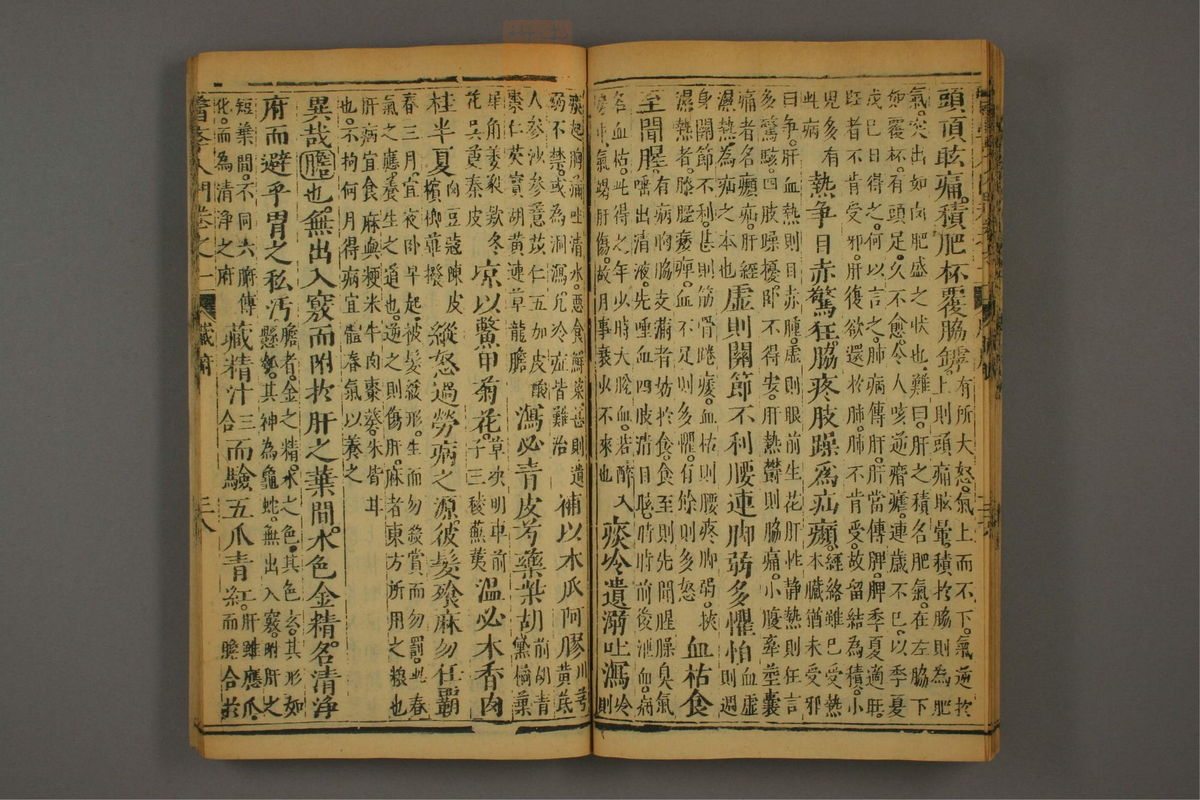 頭頂眩痛。積肥杯覆脇
有所大怒。氣上而不下。氣逆於
上則頭痛眩暈。積於脇則為肥
氣。突出如肉肥盛之狀也。難曰。肝之積名肥氣。在左脇下
如覆杯。有頭足。久不愈。令人咳逆瘧。連歲不已。以季夏
戊己日得之。何以言之。肺病傳肝。肝當傳脾。脾季夏適旺。
旺者不肯受邪。肝復欲還於肺。肺不肯受。故留結為積。小
兒多有
此病
熱爭目赤驚狂。脇疼肢躁為疝㿗
經絡雖已受熱
木臟猶未受邪
曰爭。肝血熱則目赤腫。虛則眼前生花肝性靜熱則狂言
多驚駭。四肢躁擾。臥不得安。肝熱鬱則脇痛。小腹牽莖囊
痛者名㿗疝。肝經
濕熱為病之本也
虛則關節不利腰連脚弱多懼怕
血虛
則遇
身關節不利。甚則筋骨踡痿。血枯則腰疼脚弱。挾
濕熱者。膝脛痿痺。血不足則多懼。有餘則多怒
血枯食
至聞腥。
有病胸脇支滿者妨於食。食至則先聞腥臊臭氣
唾出清液。先唾血四肢清目眩。時時前後泄血。病
名血枯。此得之年少時大脫血。若醉入
房中。氣竭肝傷。故月事衰少不來也
痰冷遺溺吐瀉
冷
則
痰起胸痛吐清水。惡食鮮菜。甚則遺
溺不禁。或為洞瀉。冗冷疝皆難治
補以木瓜阿膠
川芎
黃芪
人參沙參薏苡仁五加皮酸
棗仁英實胡黃連草龍膽
瀉必青皮芍藥柴胡
前胡青
黛橘葉
犀角姜蚕欵冬
花吳萸秦皮
凉以鱉甲菊花。
草決明車前
子三稜蕪荑
溫必木香肉
桂半夏
肉豆蔻陳皮
檳榔蓽撥
縱怒過勞病之源。彼髮飧麻勿任霸
春三月。宜夜卧早起。被髮緩形。生而勿殺賞而勿罰。此春
氣之應。養生之道也。逆之則傷肝。麻者東方所用之糧也
肝病宜食麻與粳米牛肉棗葵。朱皆耳
也。不拘何月得病宜體春氣以養之
異哉膽也。無出入竅而附於肝之葉間。水色金精。名清淨
府而避乎胃之私汚
膽者。金之精。水之色。其色玄。其形如
懸瓠。其神為龜蛇。無出入竅。附肝之
短葉間。不同六腑傳
化。而為清淨之府
藏精汁三合而驗五爪青紅。
肝雖應爪。
而膽合於
醫學入門卷之一
臟腑
三八